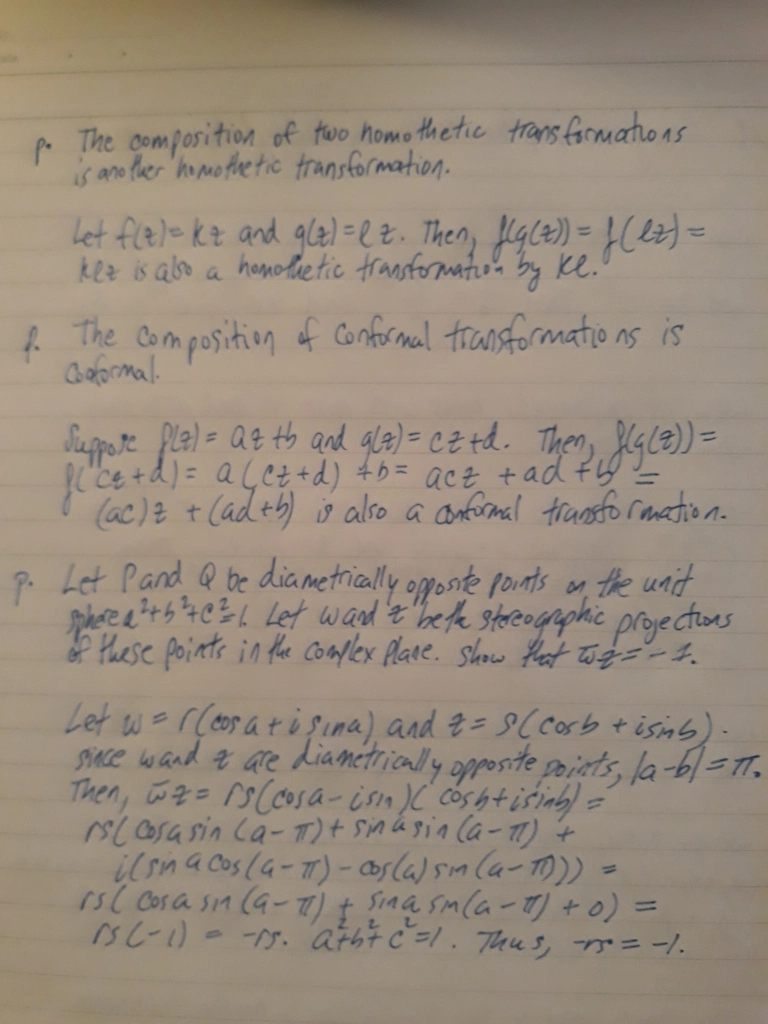 p. The composition of two homothetic transformations
is another homothetic transformation.
Let f(z)=kz and g(z)=lz. Then, f(g(z))=f(lz)=
klz is also a homothetic transformation by kl.
p. The composition of conformal transformations is
conformal.
Suppose f(z)= az+b and g(z)= cz+d. Then, f(g(z))=
f(cz+d)= a(cz+d)+b= acz +ad +b =
(ac)z +(ad+b) is also a conformal transformation.
p. Let P and Q be diametrically opposite points on the unit
sphere a²+b²+c²=1. Let w and z be the stereographic projections
of these points in the complex plane. Show that w̅z=-1.
Let w = r(cos a + i sin a) and z = s(cos b + i sin b).
since w and z are diametrically opposite points, |a-b|=π.
Then, w̅z= rs(cosa-isin)(cosb+isinb)=
rs(cosasin(a-π)+sinasin(a-π) +
i(sinacos(a-π)-cos(a)sin(a-π)))=
rs(cosasin(a-π)+sinasin(a-π)+0)=
rs(-1) = -rs. a²+b²+c²=1. Thus, -rs=-1.